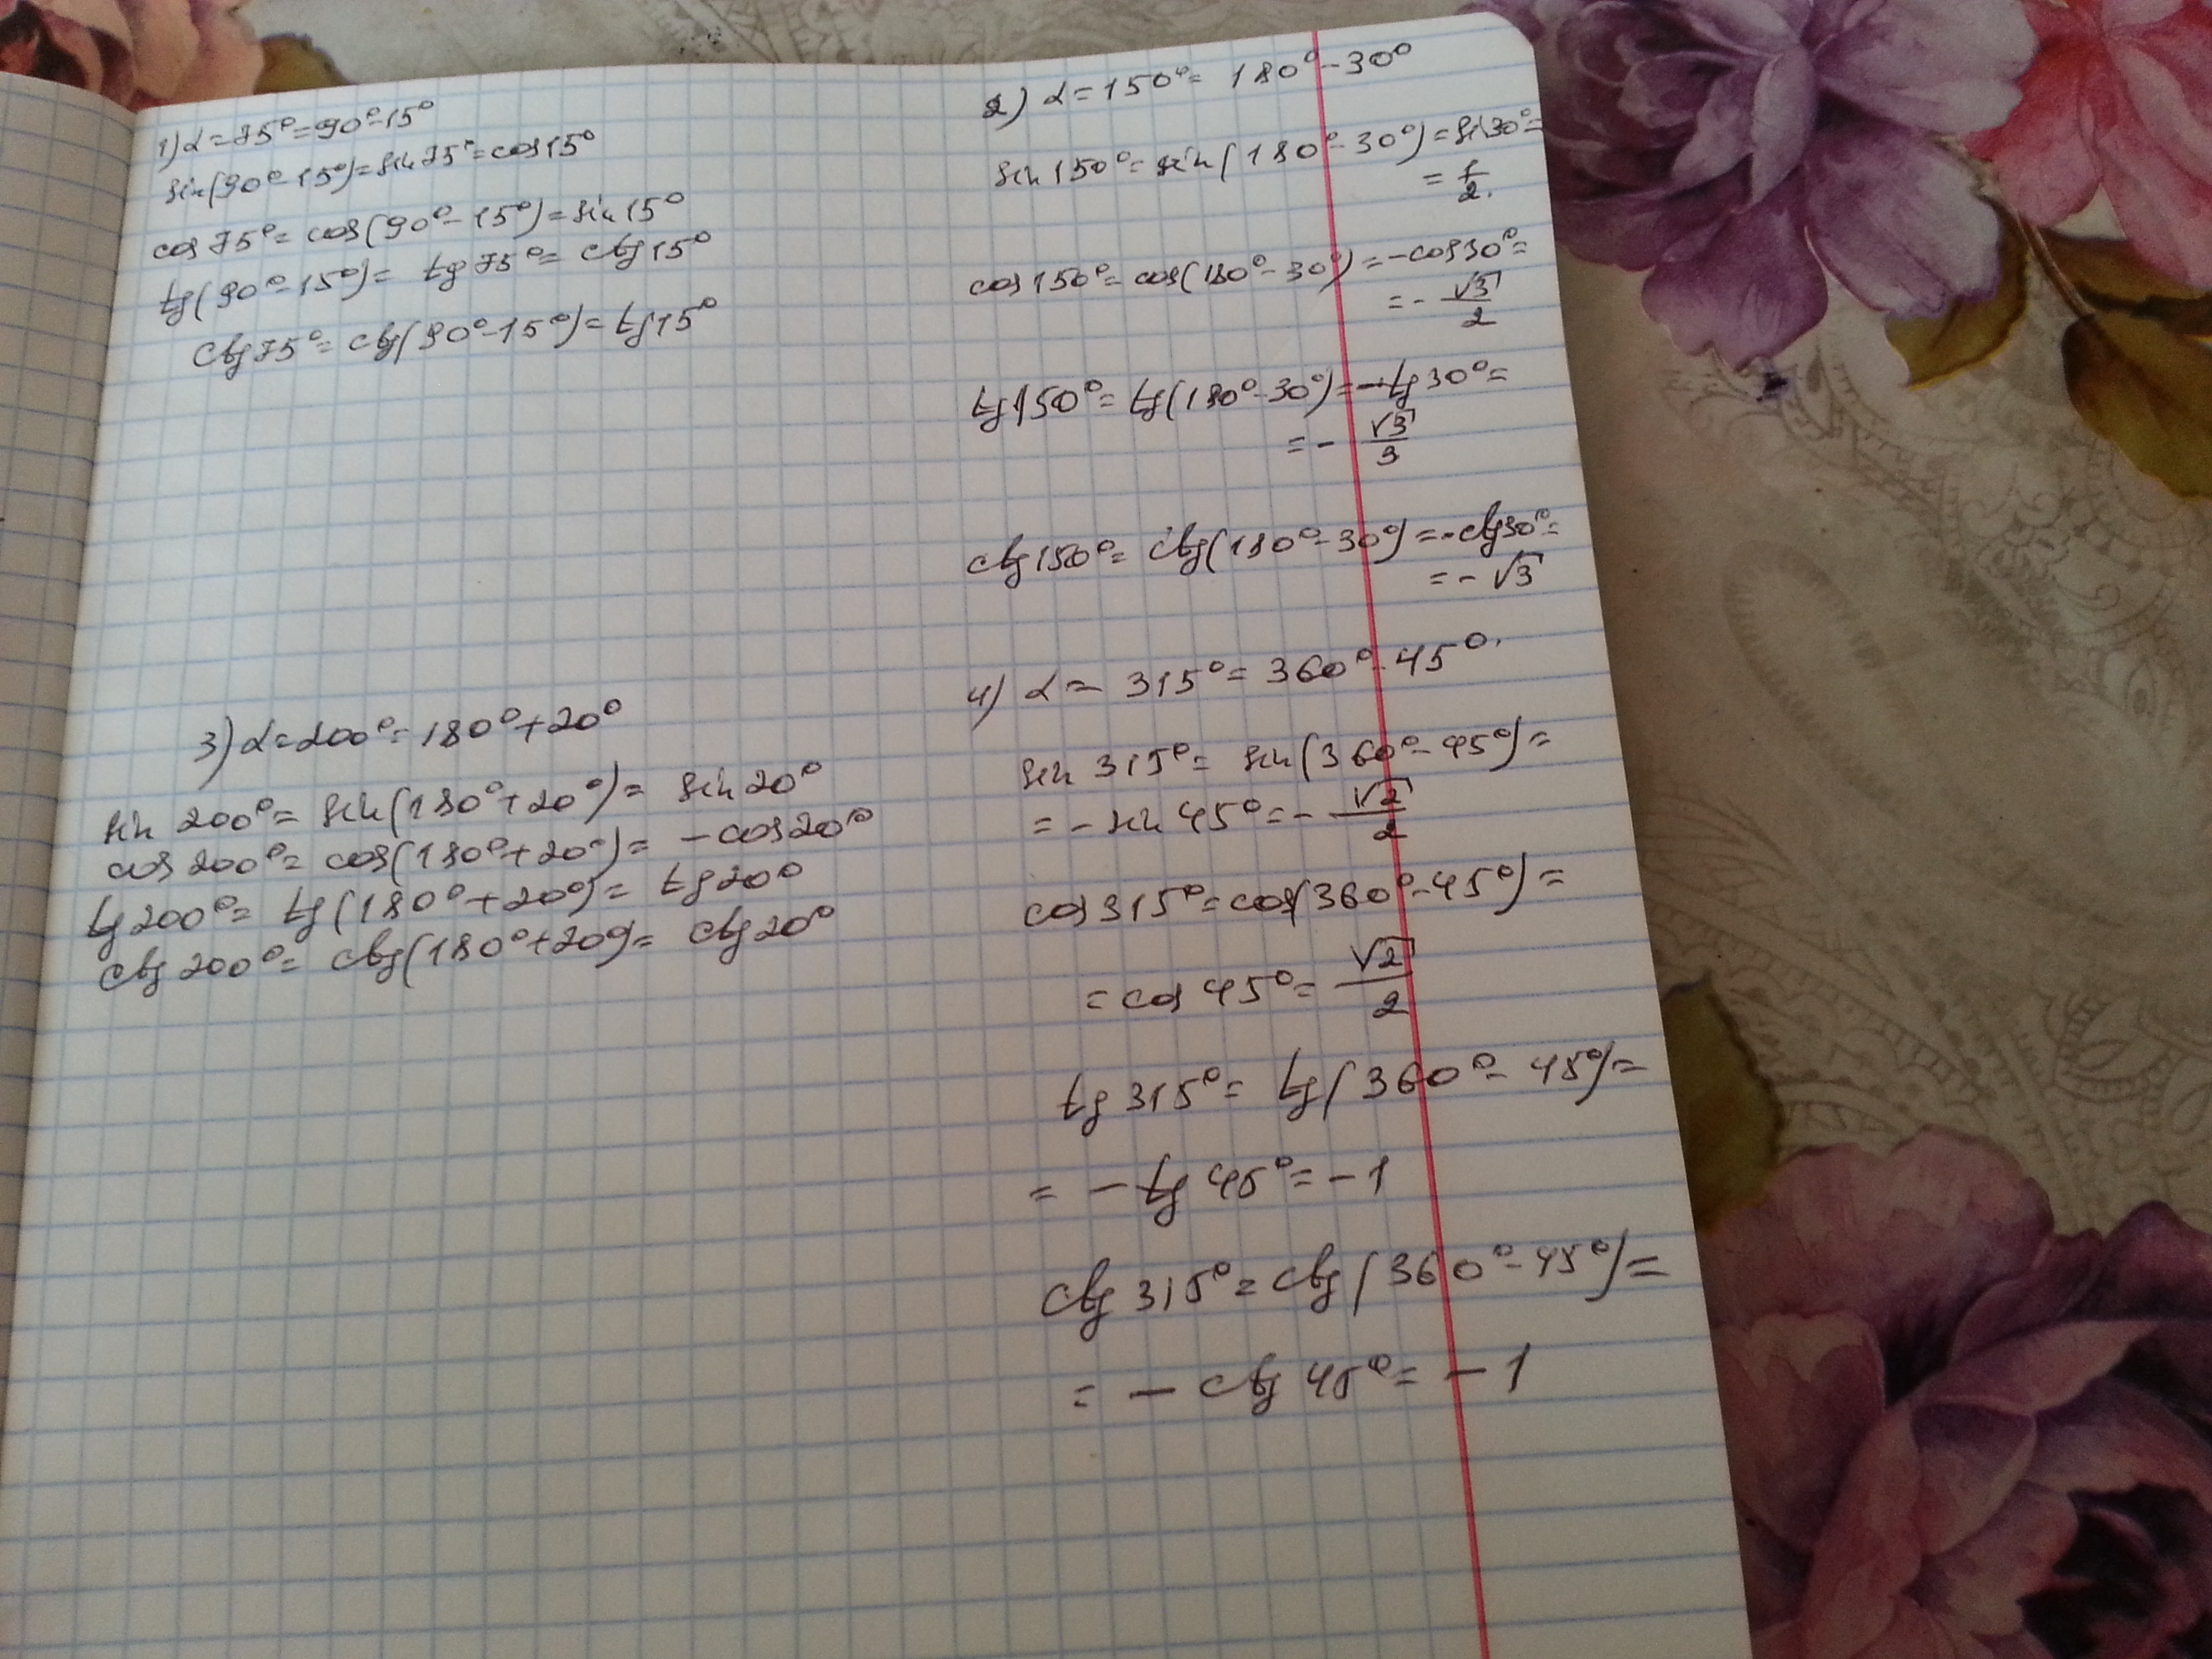 1) α = 75° = 90° - 15°
sin(90° - 15°) = sin 75° = cos 15°
cos 75° = cos(90° - 15°) = sin 15°
tg(90° - 15°) = tg 75° = ctg 15°
ctg 75° = ctg(90° - 15°) = tg 15°
2) α = 150° = 180° - 30°
sin 150° = sin(180° - 30°) = sin 30° =
= 1/2.
cos 150° = cos(180° - 30°) = -cos 30° =
= - √3/2
tg 150° = tg(180° - 30°) = -tg 30° =
= - √3/3
ctg 150° = ctg(180° - 30°) = -ctg 30° =
= - √3
3) α = 200° = 180° + 20°
sin 200° = sin(180° + 20°) = sin 20°
cos 200° = cos(180° + 20°) = - cos 20°
tg 200° = tg(180° + 20°) = tg 20°
ctg 200° = ctg(180° + 20°) = ctg 20°
4) α = 315° = 360° - 45°.
sin 315° = sin(360° - 45°) =
= - sin 45° = - √2/2
cos 315° = cos(360° - 45°) =
= cos 45° = √2/2
tg 315° = tg(360° - 45°) =
= - tg 45° = - 1
ctg 315° = ctg(360° - 45°) =
= - ctg 45° = - 1